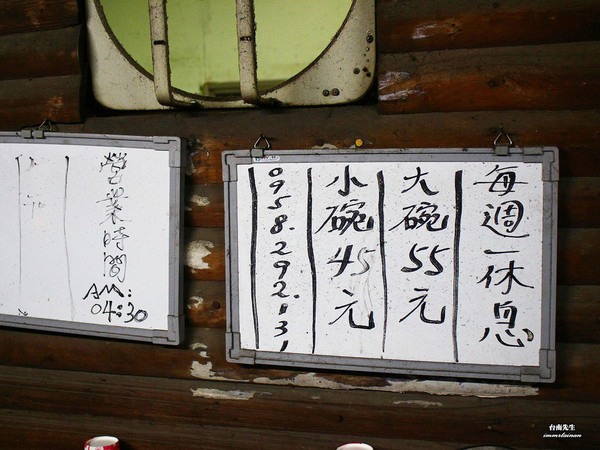 每週一休息
大碗55元
小碗45元
0958.292.131
營業時間
AM:
04:30
台南先生
immrtainan